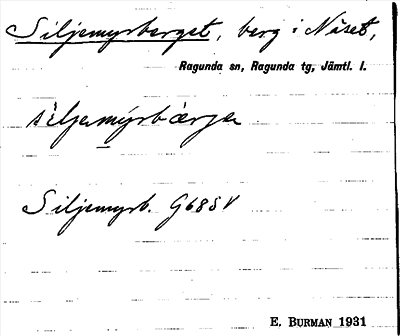 Siljemyrberget, berg i Näset,
Ragunda sn, Ragunda tg, Jämtl. l.
sìljemýrbærje
Siljemyrb. G68SV
E. BURMAN 1931